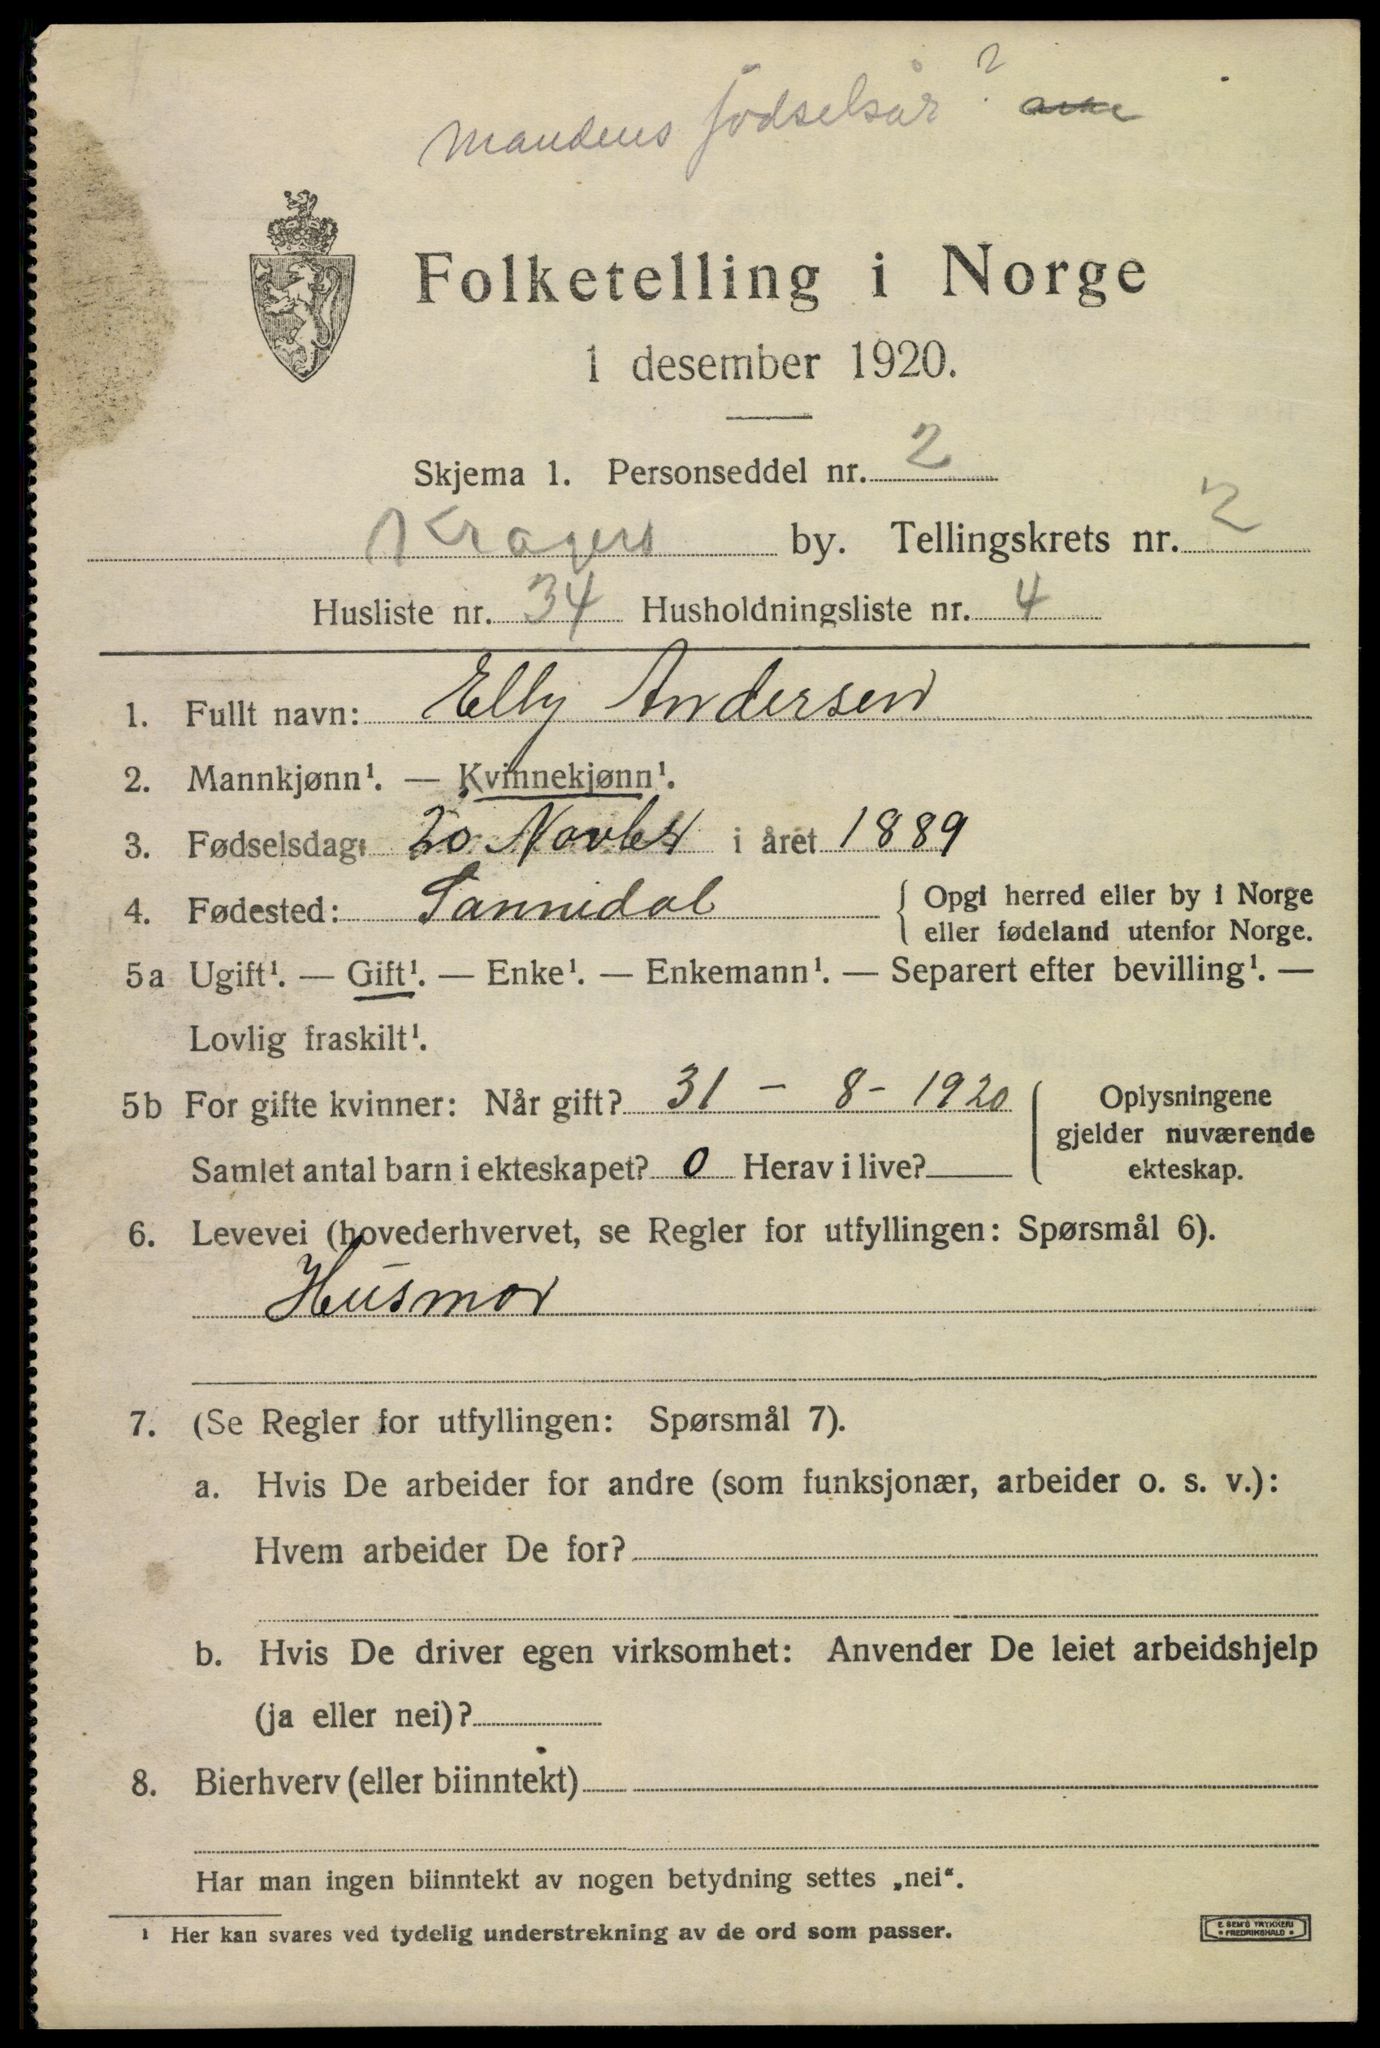 Mandens fødselsår?
Folketelling i Norge
1 desember 1920.
Skjema 1. Personseddel nr. 2
Kragerø by. Tellingskrets nr. 2
Husliste nr. 34 Husholdningsliste nr. 4
1. Fullt navn: Elly Andersen
2. Mannkjønn¹. — Kvinnekjønn¹.
3. Fødselsdag: 20 Novbr i året 1889
4. Fødested: Sannidal { Opgi herred eller by i Norge
eller fødeland utenfor Norge.
5a Ugift¹. — Gift¹. — Enke¹. — Enkemann¹. — Separert efter bevilling¹. —
Lovlig fraskilt¹.
5b For gifte kvinner: Når gift? 31 - 8 - 1920 { Oplysningene
gjelder nuværende
Samlet antal barn i ekteskapet? 0 Herav i live?
ekteskap.
6. Levevei (hovederhvervet, se Regler for utfyllingen: Spørsmål 6).
Husmor
7. (Se Regler for utfyllingen: Spørsmål 7).
a. Hvis De arbeider for andre (som funksjonær, arbeider o. s. v.):
Hvem arbeider De for?
b. Hvis De driver egen virksomhet: Anvender De leiet arbeidshjelp
(ja eller nei)?
8. Bierhverv (eller biinntekt) —
Har man ingen biinntekt av nogen betydning settes „nei“.
¹ Her kan svares ved tydelig understrekning av de ord som passer.
E. SEM'S TRYKKERI
* FREDRIKSHALD *